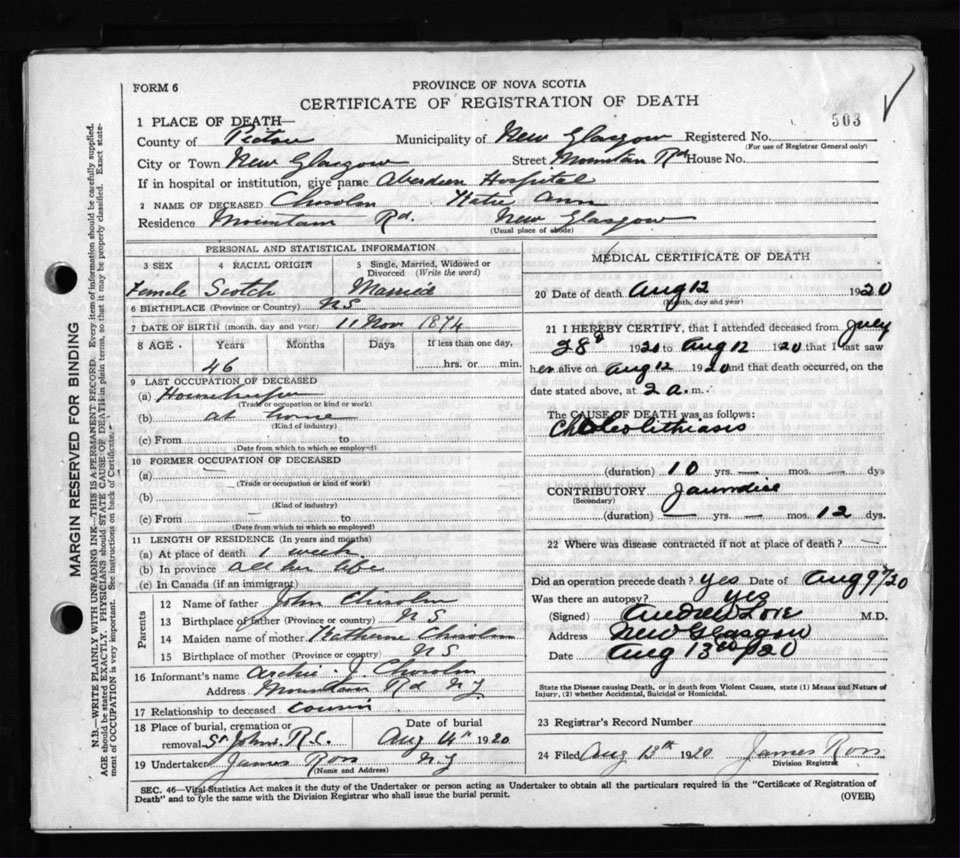 FORM 6
PROVINCE OF NOVA SCOTIA
CERTIFICATE OF REGISTRATION OF DEATH
503
1 PLACE OF DEATH—
County of Pictou Municipality of New Glasgow Registered No.
(For use of Registrar General only)
City or Town New Glasgow Street Mountain Rd House No.
If in hospital or institution, give name Aberdeen Hospital
2 NAME OF DECEASED Chisolm Katie Ann
Residence Mountain Rd. New Glasgow
(Usual place of abode)
PERSONAL AND STATISTICAL INFORMATION
3 SEX 4 RACIAL ORIGIN 5 Single, Married, Widowed or Divorced (Write the word)
Female Scotch Married
6 BIRTHPLACE (Province or Country) N S
7 DATE OF BIRTH (month, day and year) 11 Nov 1874
8 AGE Years Months Days If less than one day,
46 hrs. or min.
9 LAST OCCUPATION OF DECEASED
(a) Housekeeper
(Trade or occupation or kind or work)
(b) at home
(Kind of industry)
(c) From to
(Date from which to which so employed)
10 FORMER OCCUPATION OF DECEASED
(a) —
(Trade or occupation or kind of work)
(b)
(Kind of industry)
(c) From to
(Date from which to which so employed)
11 LENGTH OF RESIDENCE (In years and months)
(a) At place of death 1 week
(b) In province all her life
(c) In Canada (if an immigrant)
Parents
12 Name of father John Chisolm
13 Birthplace of father (Province or country) N S
14 Maiden name of mother Katherine Chisolm
15 Birthplace of mother (Province or country) N S
16 Informant's name Archie J. Chisolm
Address Mountain Rd N G
17 Relationship to deceased cousin
18 Place of burial, cremation or removal St Johns R.C. Date of burial Aug 14th 1920
19 Undertaker James Ross N G
(Name and Address)
MEDICAL CERTIFICATE OF DEATH
20 Date of death Aug 12 1920
(Month, day and year)
21 I HEREBY CERTIFY, that I attended deceased from July
28th 1920 to Aug 12 1920 that I last saw
her alive on Aug 12 1920 and that death occurred, on the
date stated above, at 2 a. m.
The CAUSE OF DEATH was as follows:
Cholelithiasis
(duration) 10 yrs. — mos. — dys
CONTRIBUTORY Jaundice
(Secondary)
(duration) — yrs. — mos. 12 dys.
22 Where was disease contracted if not at place of death? —
Did an operation precede death? yes Date of Aug 9th/20
Was there an autopsy? yes
(Signed) Andrew Love M.D.
Address New Glasgow
Date Aug 13 1920
State the Disease causing Death, or in death from Violent Causes, state (1) Means and Nature of
Injury, (2) whether Accidental, Suicidal or Homicidal.
23 Registrar's Record Number
24 Filed Aug 13th 1920 James Ross
Division Registrar
SEC. 46—Vital Statistics Act makes it the duty of the Undertaker or person acting as Undertaker to obtain all the particulars required in the "Certificate of Registration of
Death" and to fyle the same with the Division Registrar who shall issue the burial permit.
(OVER)
MARGIN RESERVED FOR BINDING
N.B.—WRITE PLAINLY WITH UNFADING INK—THIS IS A PERMANENT RECORD. Every item of information should be carefully supplied.
AGE should be stated EXACTLY. PHYSICIANS should STATE CAUSE OF DEATH in plain terms, so that it may be properly classified. Exact state-
ment of OCCUPATION is very important. See instructions on back of Certificate.